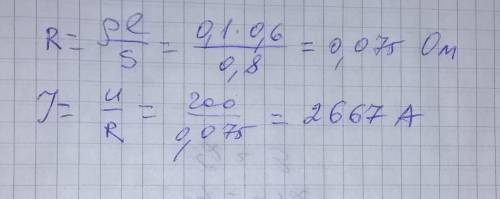 R = ρl/S = 0,1·0,6/0,8 = 0,075 Ом
I = U/R = 200/0,075 = 2667 А